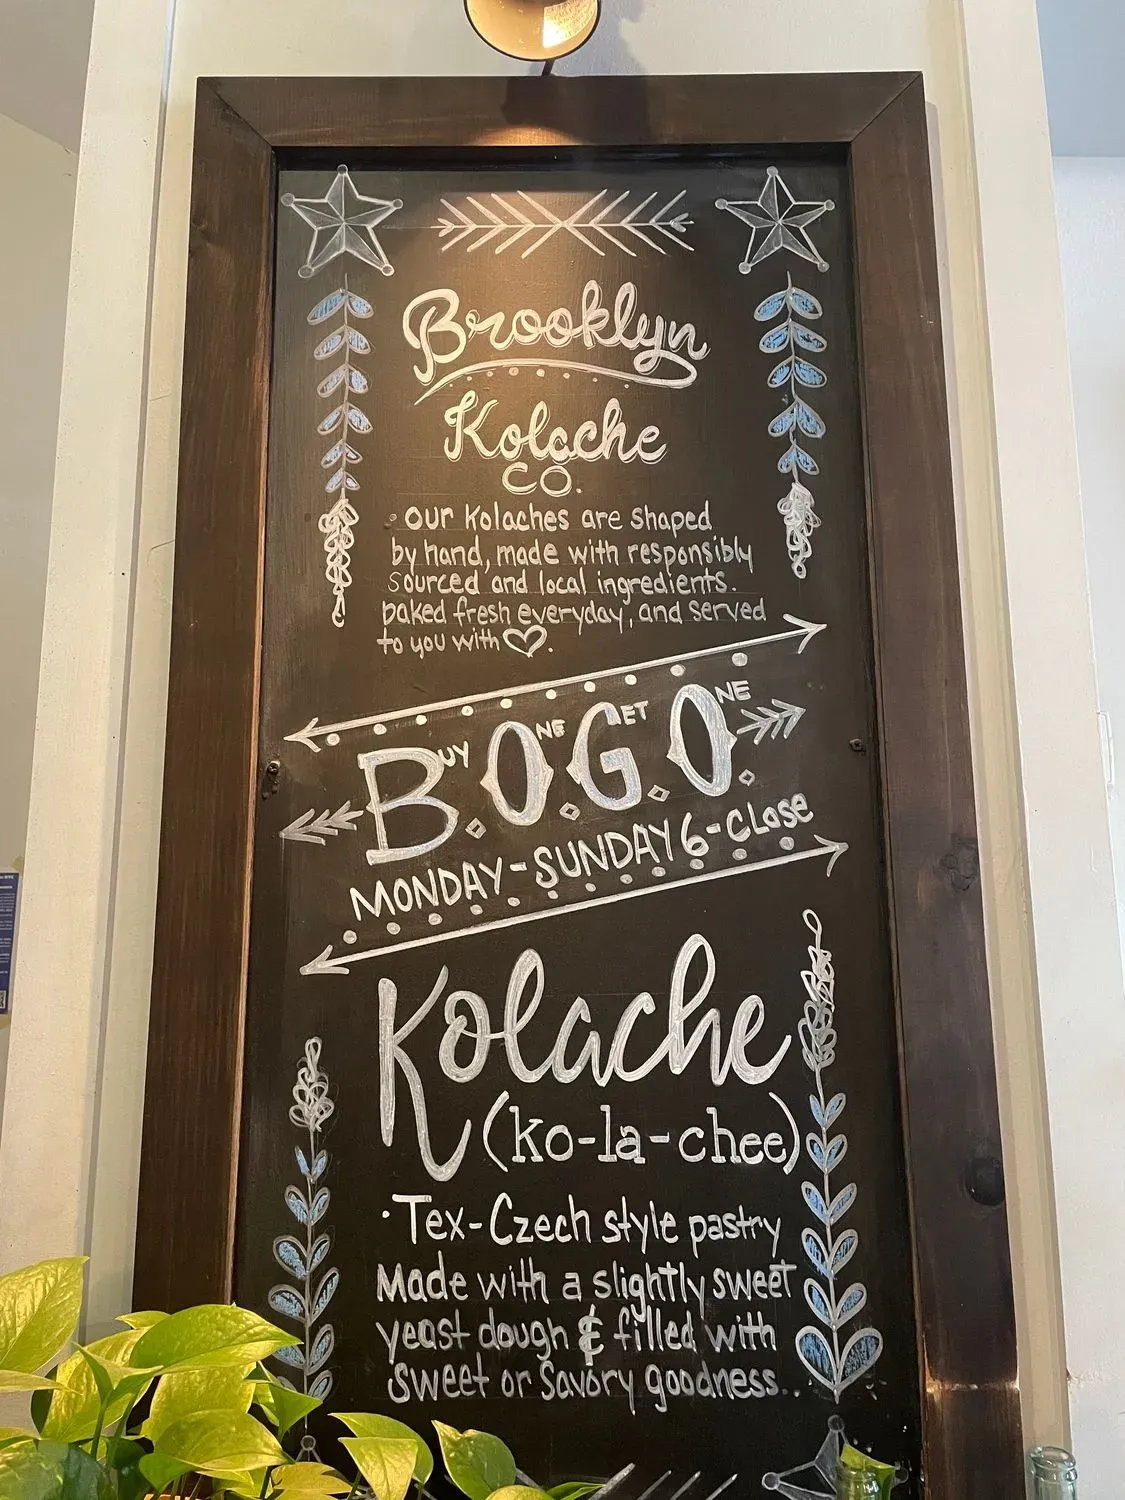 Brooklyn
Kolache
CO.
· our Kolaches are shaped
by hand, made with responsibly
sourced and local ingredients.
baked fresh everyday, and served
to you with ♡.
BUY ONE GET ONE
MONDAY-SUNDAY 6-CLOSE
Kolache
(ko-la-chee)
· Tex-Czech style pastry
Made with a slightly sweet
yeast dough & filled with
sweet or savory goodness..